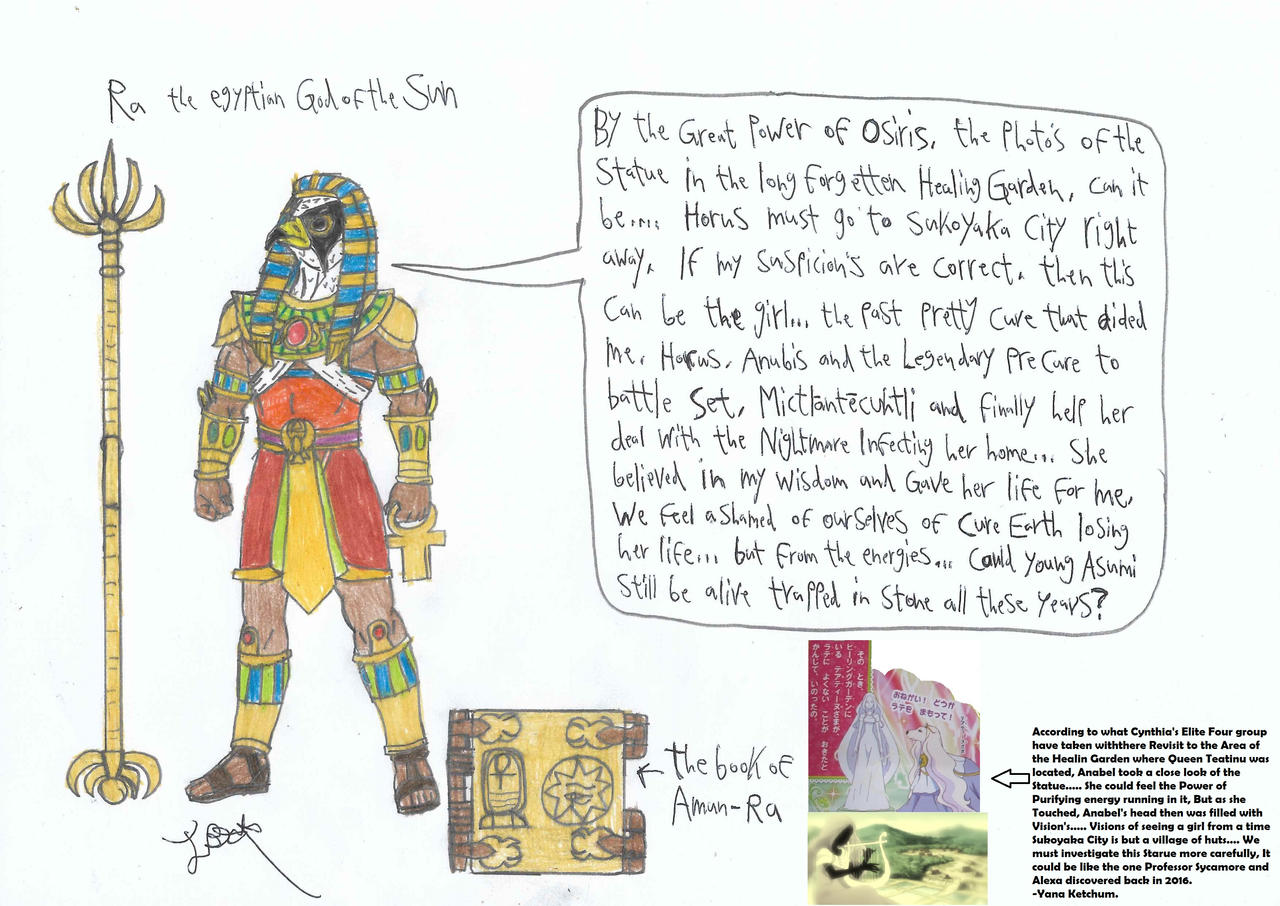 Ra the egyptian God of the Sun
By the Great Power of Osiris, the Photo's of the
Statue in the long forgetten Healing Garden, can it
be..... Horus must go to Sukoyaka City right
away. If my suspicion's are correct. then this
can be the girl... the past Pretty Cure that aided
me, Horus, Anubis and the Legendary PreCure to
battle Set, Mictlāntēcuhtli and finally help her
deal with the Nightmare Infecting her home... She
believed in my wisdom and Gave her life for me,
We feel ashamed of ourselves of Cure Earth losing
her life... but from the energies... Could Young Asumi
Still be alive trapped in Stone all these years?
the book of
Amun-Ra
その とき、
ヒーリングガーデンに
いる テアティーヌさまが、
ラテに よくない ことが おきたと
かんじて、いのったの。
おねがい! どうか
ラテを まもって!
According to what Cynthia's Elite Four group
have taken withthere Revisit to the Area of
the Healin Garden where Queen Teatinu was
located, Anabel took a close look of the
Statue..... She could feel the Power of
Purifying energy running in it, But as she
Touched, Anabel's head then was filled with
Vision's..... Visions of seeing a girl from a time
Sukoyaka City is but a village of huts.... We
must investigate this Starue more carefully, It
could be like the one Professor Sycamore and
Alexa discovered back in 2016.
-Yana Ketchum.